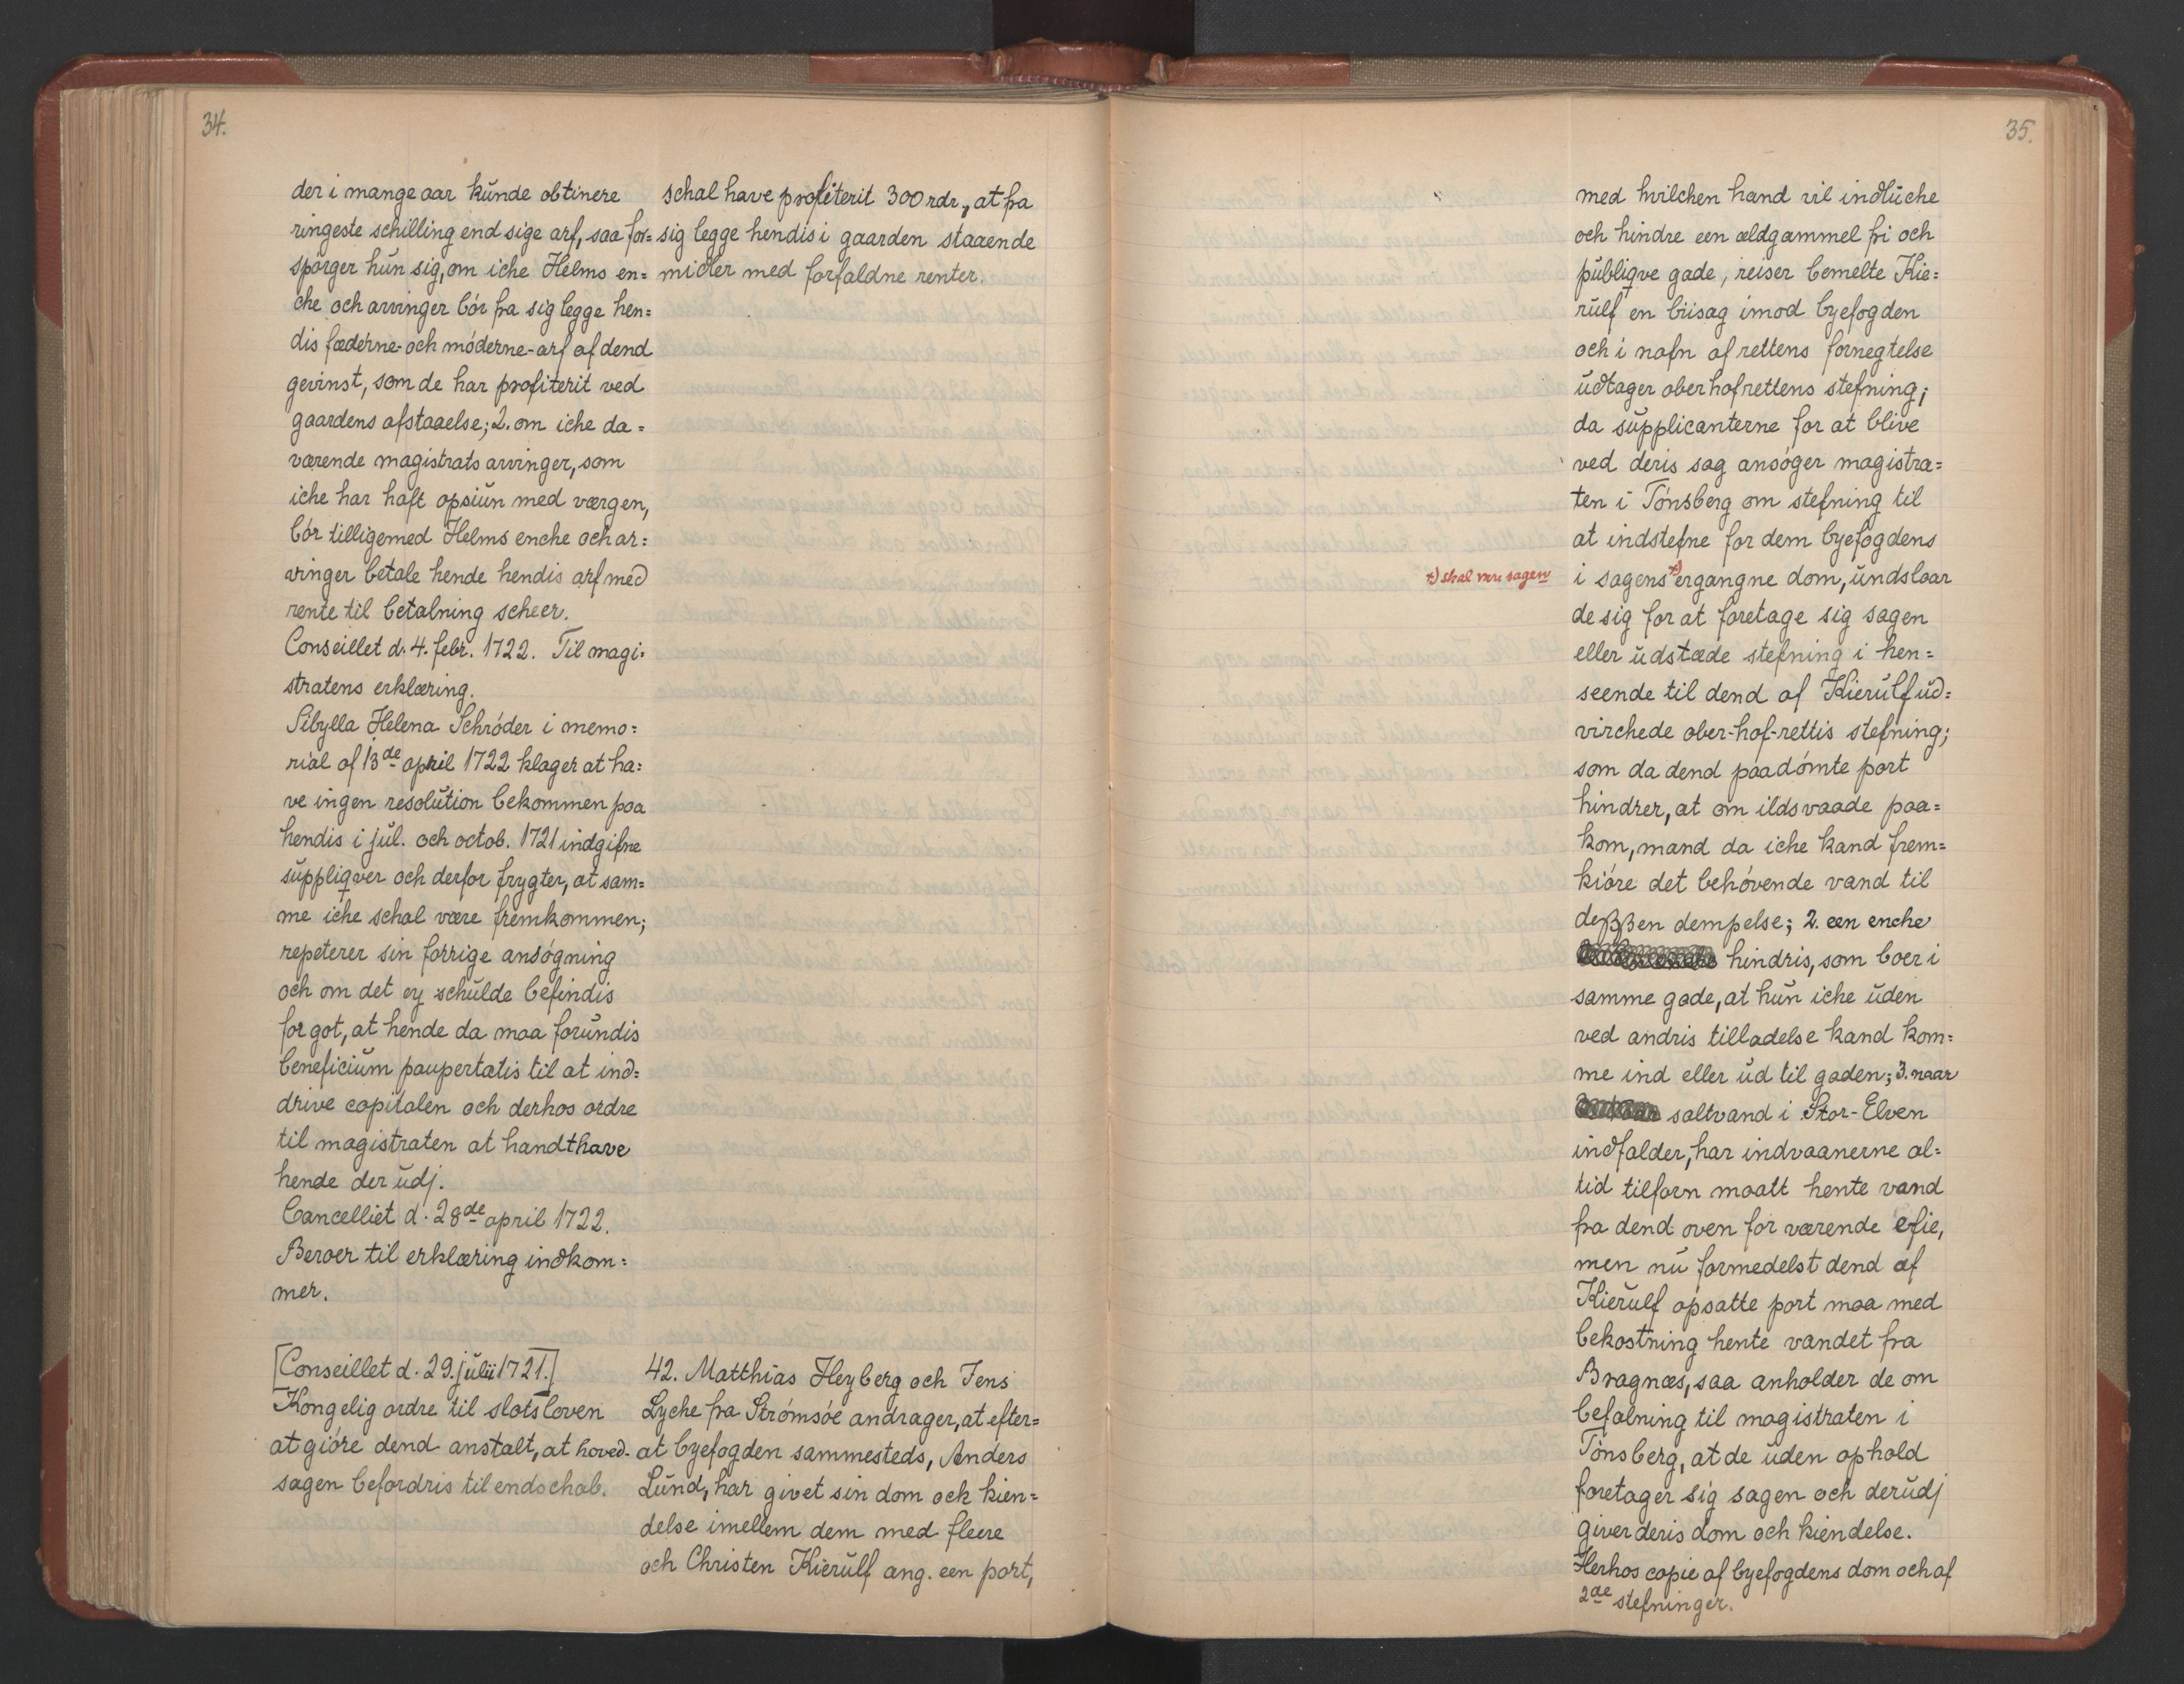 34.
der i mange aar kunde obtinere
ringeste schilling end sige arf, saa for=
spørger hun sig, om iche Helms en=
che och arvinger bør fra sig legge hen=
dis fæderne- och møderne-arf af dend
gevinst, som de har profiterit ved
gaardens afstaaelse; 2. om iche da=
værende magistrats arvinger, som
iche har haft opsiun med værgen,
bør tilligemed Helms enche och ar=
vinger betale hende hendis arf med
rente til betalning scheer.
Conseillet d. 4. febr. 1722. Til magi=
stratens erklæring.
Sibylla Helena Schrøder i memo=
rial af 13de april 1722 klager at ha=
ve ingen resolution bekommen paa
hendis i jul. och octob. 1721 indgifne
suppliqver och derfor frygter, at sam=
me iche schal være fremkommen;
repeterer sin forrige ansøgning
och om det ey schulde befindis
for got, at hende da maa forundis
beneficium paupertatis til at ind=
drive capitalen och derhos ordre
til magistraten at handthave
hende der udj.
Cancelliet d. 28de april 1722.
Beroer til erklæring indkom=
mer.
[Conseillet d. 29. julii 1721.]
Kongelig ordre til slotsloven
at giøre dend anstalt, at hoved-
sagen befordris til endschab.
schal have profiterit 300 rdr., at fra
sig legge hendis i gaarden staaende
midler med forfaldne renter.
42. Matthias Heyberg och Jens
Lyche fra Strømsøe andrager, at efter=
at byefogden sammesteds, Anders
Lund, har givet sin dom och kien=
delse imellem dem med fleere
och Christen Kierulf ang. een port,
35.
med hvilchen hand vil indluche
och hindre een ældgammel fri och
publiqve gade, reiser bemelte Kie=
rulf en biisag imod byefogden
och i nafn af rettens fornegtelse
udtager oberhofrettens stefning;
da supplicanterne for at blive
ved deris sag ansøger magistra=
ten i Tønsberg om stefning til
at indstefne for dem byefogdens
+) skal være sagen
i sagens +) ergangne dom, undslaar
de sig for at foretage sig sagen
eller udstæde stefning i hen=
seende til dend af Kierulf ud=
virchede ober-hof-rettis stefning;
som da dend paadømte port
hindrer, at om ildsvaade paa=
kom, mand da iche kand frem=
kiøre det behøvende vand til
deßßen dempelse; 2. een enche
hindris, som boer i
samme gade, at hun iche uden
ved andris tilladelse kand kom=
me ind eller ud til gaden; 3. naar
saltvand i Stor-Elven
indfalder, har indvaanerne al=
tid tilforn maatt hente vand
fra dend oven for værende efie,
men nu formedelst dend af
Kierulf opsatte port maa med
bekostning hente vandet fra
Bragnæs, saa anholder de om
befalning til magistraten i
Tønsberg, at de uden ophold
foretager sig sagen och derudj
giver deris dom och kiendelse.
Herhos copie af byefogdens dom och af
2de stefninger.